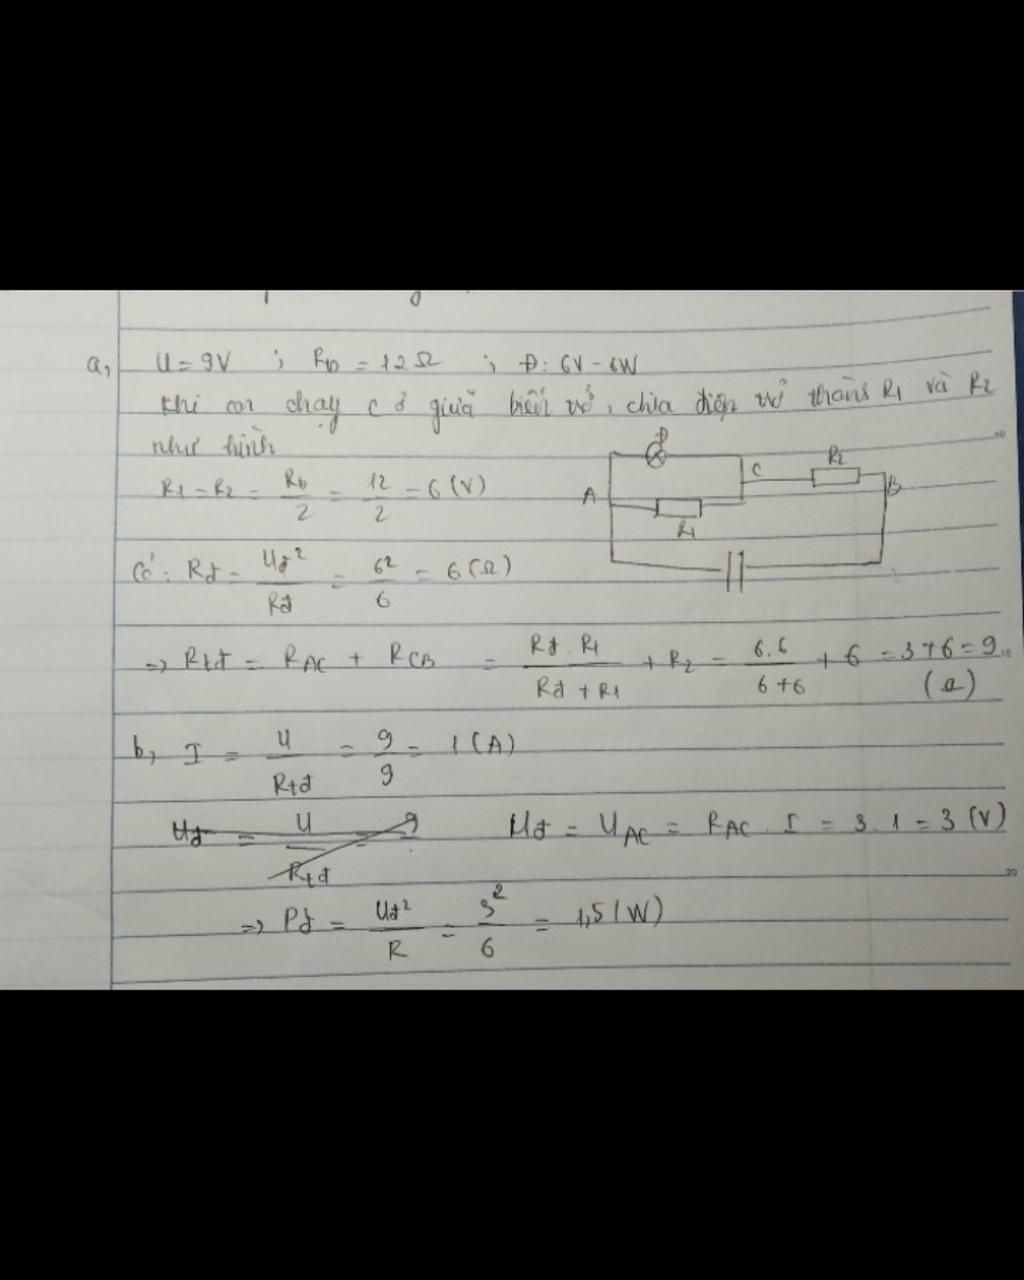 a, U = 9V ; Rb = 12Ω ; Đ: 6V - 6W
Khi con chạy C ở giữa biến trở, chia điện trở thành R1 và R2
như hình
R1 = R2 = Rb/2 = 12/2 = 6 (V)
Đ
C
R2
A
B
R1
Có: Rđ = Uđ²/Rđ = 6²/6 = 6 (Ω)
=> Rtđ = RAC + RCB = Rđ.R1/(Rđ + R1) + R2 = 6.6/(6+6) + 6 = 3+6 = 9
(Ω)
b, I = U/Rtđ = 9/9 = 1 (A)
Uđ = U/Rtđ = 9 Uđ = UAC = RAC . I = 3.1 = 3 (V)
=> Pđ = Uđ²/R = 3²/6 = 1,5 (W)